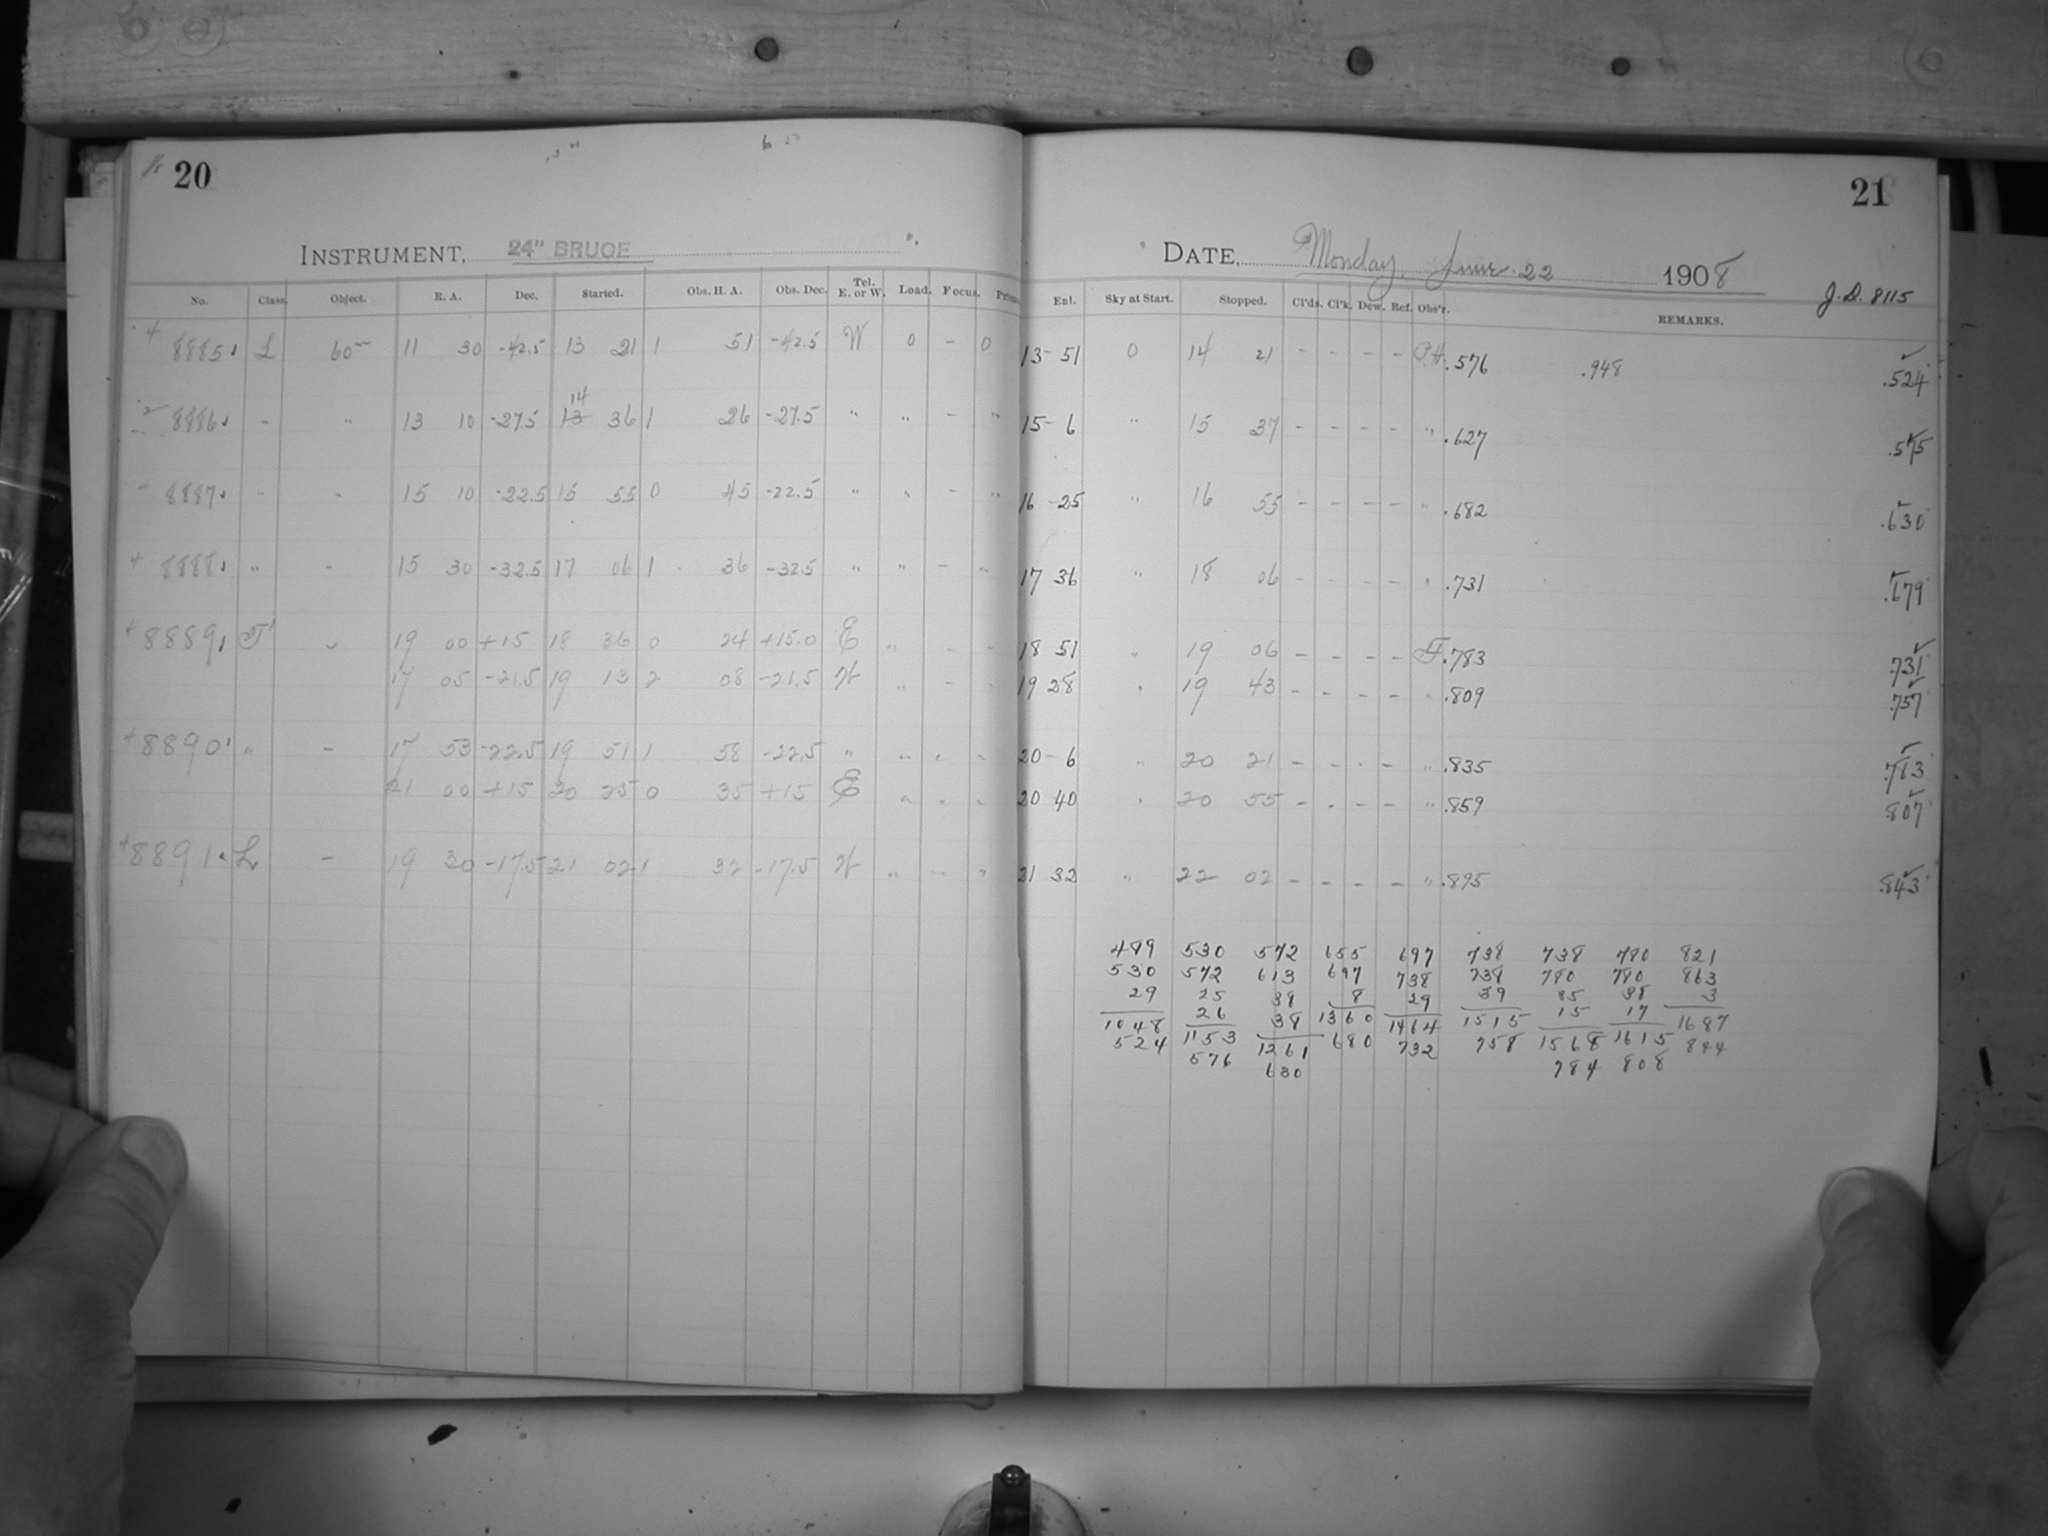 20
INSTRUMENT, 24" BRUCE
No. Class. Object. R. A. Dec. Started. Obs. H. A. Obs. Dec. Tel. E. or W. Load. Focus.
8885 L 60m 11 30 -42.5 13 21 1 51 -42.5 W 0 - 0
8886 - " 13 10 -27.5 13 14 36 1 26 -27.5 " " - "
8887 - " 15 10 -22.5 15 55 0 45 -22.5 " " - "
8888 " - 15 30 -32.5 17 06 1 36 -32.5 " " - "
8889 19 00 +15 18 36 0 24 +15.0 E " - -
17 05 -21.5 19 13 2 08 -21.5 W " - -
8890 " - 17 53 -22.5 19 51 1 58 -22.5 " " " "
21 00 +15 20 25 0 35 +15 E " " "
8891 L - 19 30 -17.5 21 02 1 32 -17.5 W " - "
21
DATE, Monday, June 22 1908
J.D. 8115
Ent. Sky at Start. Stopped. Cl'ds. Cl'k. Dew. Ref. Obs'r. REMARKS.
13-51 0 14 21 - - - - .576 .948 .524
15-6 " 15 37 - - - - " .627 .575
16-25 " 16 55 - - - - " .682 .630
17 36 " 18 06 - - - - " .731 .679
18 51 " 19 06 - - - - .783 .731
19 28 " 19 43 - - - - " .809 .757
20-6 " 20 21 - - - - " .835 .783
20 40 " 20 55 - - - - " .859 .807
21 32 " 22 02 - - - - " .895 .843
489 530 572 655 697 738 738 780 821
530 572 613 697 738 738 780 780 863
29 25 38 8 29 39 35 38 3
26 38 15 17
1048 1153 1261 1360 1464 1515 1568 1615 1687
524 576 630 680 732 758 784 808 844